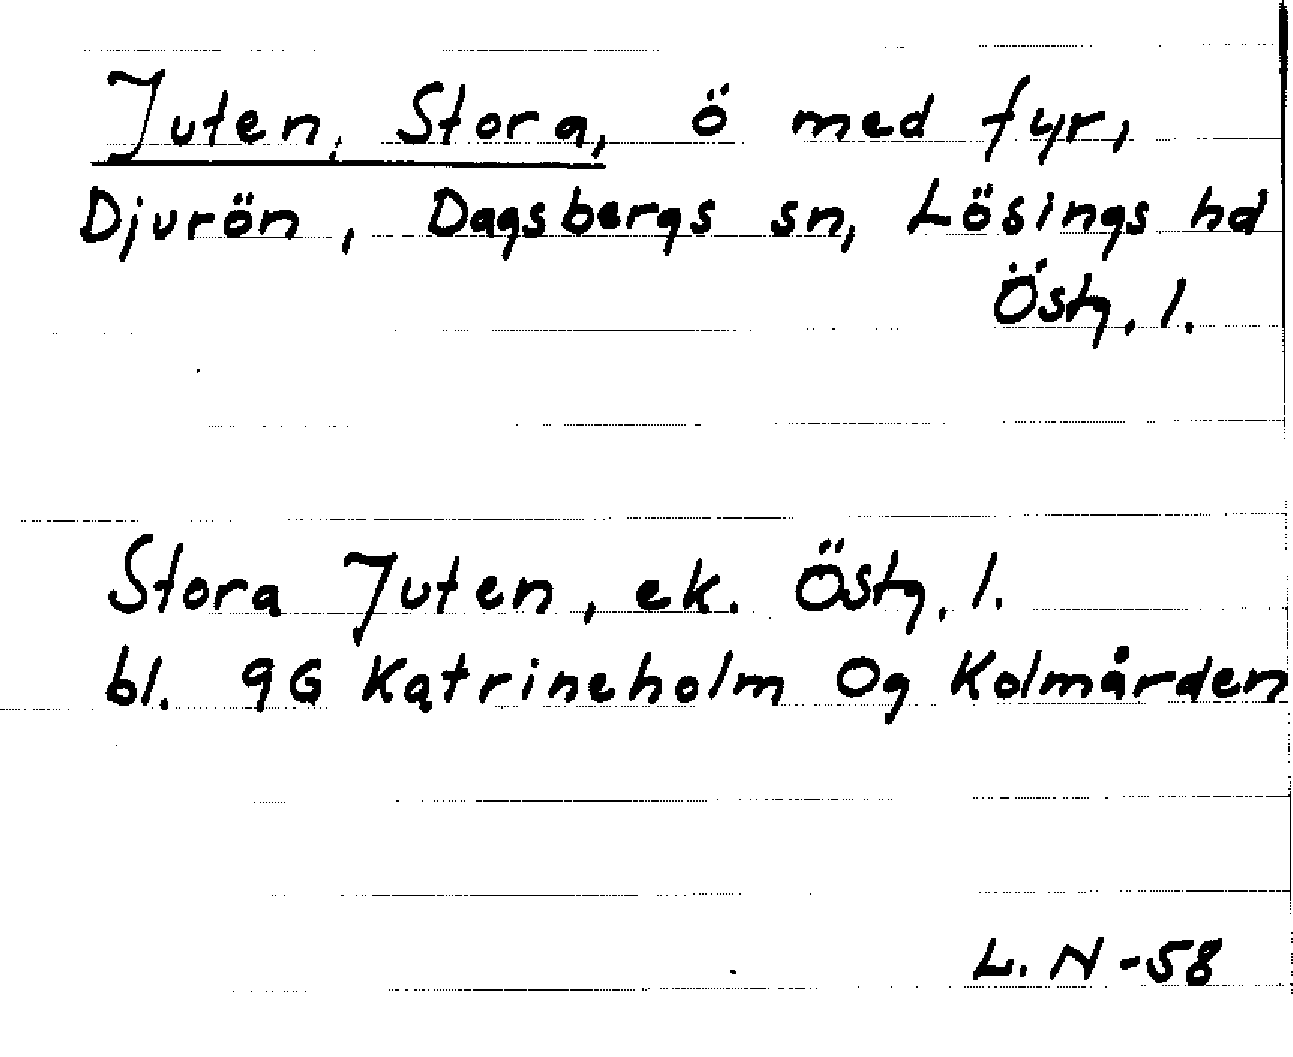 Juten, Stora, ö med fyr,
Djurön, Dagsbergs sn, Lösings hd
Östg. l.
Stora Juten, ek. Östg. l.
bl. 9G Katrineholm Og Kolmården
L. N -58